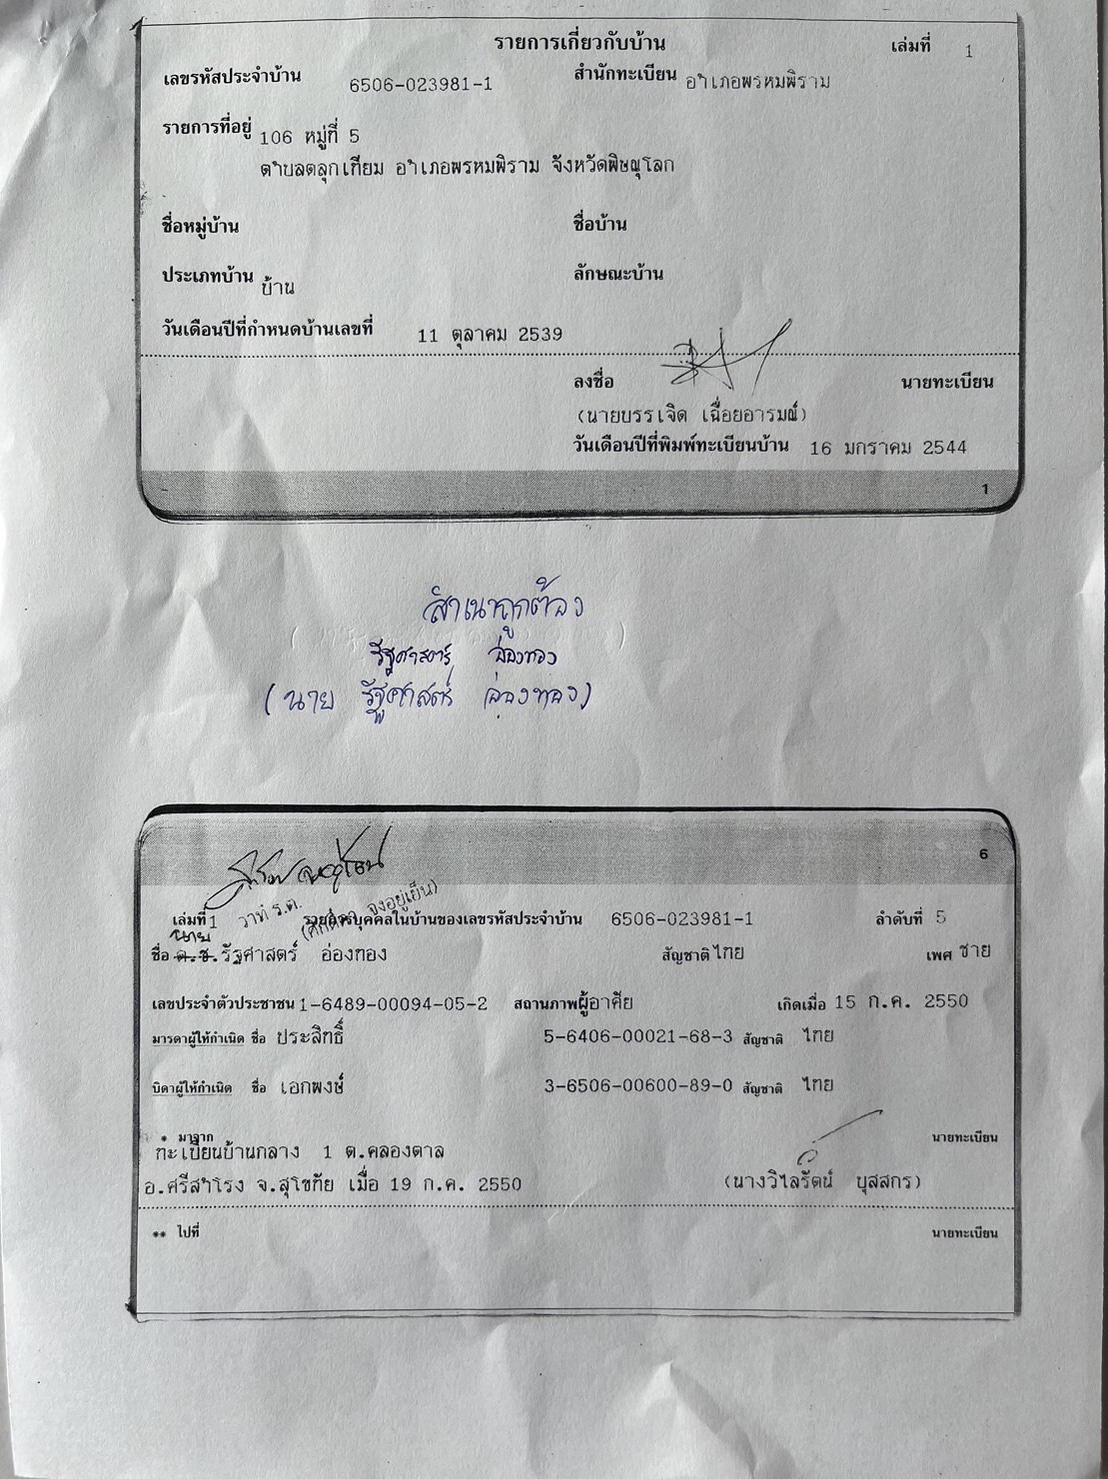 รายการเกี่ยวกับบ้าน เล่มที่ 1
เลขรหัสประจำบ้าน 6506-023981-1 สำนักทะเบียน อำเภอพรหมพิราม
รายการที่อยู่ 106 หมู่ที่ 5
ตำบลตลุกเทียม อำเภอพรหมพิราม จังหวัดพิษณุโลก
ชื่อหมู่บ้าน ชื่อบ้าน
ประเภทบ้าน บ้าน ลักษณะบ้าน
วันเดือนปีที่กำหนดบ้านเลขที่ 11 ตุลาคม 2539
ลงชื่อ นายทะเบียน
(นายบรรเจิด เฉื่อยอารมณ์)
วันเดือนปีที่พิมพ์ทะเบียนบ้าน 16 มกราคม 2544
1
สำเนาถูกต้อง
รัฐศาสตร์ อ่องทอง
(นาย รัฐศาสตร์ อ่องทอง)
6
เล่มที่ 1 ว่าที่ ร.ต. รายการบุคคลในบ้านของเลขรหัสประจำบ้าน 6506-023981-1 ลำดับที่ 5
นาย
ชื่อ ด.ช.รัฐศาสตร์ อ่องทอง สัญชาติ ไทย เพศ ชาย
เลขประจำตัวประชาชน 1-6489-00094-05-2 สถานภาพ ผู้อาศัย เกิดเมื่อ 15 ก.ค. 2550
มารดาผู้ให้กำเนิด ชื่อ ประสิทธิ์ 5-6406-00021-68-3 สัญชาติ ไทย
บิดาผู้ให้กำเนิด ชื่อ เอกพงษ์ 3-6506-00600-89-0 สัญชาติ ไทย
* มาจาก นายทะเบียน
ทะเบียนบ้านกลาง 1 ต.คลองตาล
อ.ศรีสำโรง จ.สุโขทัย เมื่อ 19 ก.ค. 2550 (นางวิไลรัตน์ บุสสกร)
** ไปที่ นายทะเบียน